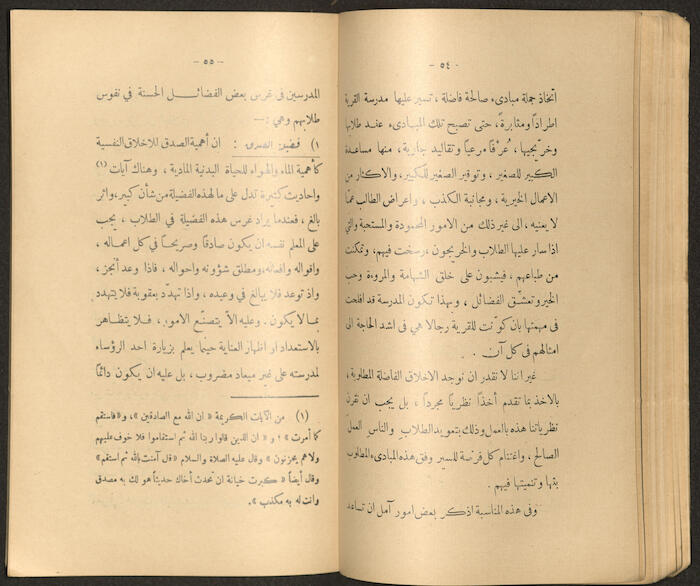 - ٥٤ -
اتخاذ جملة مبادىء صالحة فاضلة ، تسير عليها مدرسة القرية
اطراداً ومثابرةً، حتى تصبح تلك المبادىء عند طلابها
وخرّيجيها، عُرفاً مرعياً وتقاليد جارية، منها مساعدة
الكبير للصغير ، وتوقير الصغير للكبير، والاكثار من
الاعمال الخيرية ، ومجانبة الكذب ، واعراض الطالب عمّا
لا يعنيه، الى غير ذلك من الامور المحمودة والمستحبة والتي
اذا سار عليها الطلاب والخريجون ،رسخت فيهم، وتمكنت
من طباعهم ، فيشبون على خلق الشهامة والمروءة وحب
الخير وتعشّق الفضائل ، وبهذا تكون المدرسة قد افلحت
فى مهمتها بان كوّنت للقرية رجالا هى فى اشد الحاجة الى
امثالهم فى كل آن .
غير اننا لا نقدر ان نوجد الاخلاق الفاضلة المطلوبة ،
بالاخذ بما تقدم أخذاً نظرياً مجرداً ، بل يجب ان نقرن
نظرياتنا هذه بالعمل وذلك بتعويد الطلاب والناس العمل
الصالح ، واغتنام كل فرصة للسير وفق هذه المبادىء المطلوب
بثها وتنميتها فيهم .
وفى هذه المناسبة اذكر بعض امور آمل ان تساعد
- ٥٥ -
المدرسين فى غرس بعض الفضائل الحسنة فى نفوس
طلابهم وهي :—
١) فضيلة الصدق : ان أهمية الصدق للاخلاق النفسية
كأهمية الماء والهواء للحياة البدنية المادية ، وهناك آيات (١)
واحاديث كثيرة تدل على ما لهذه الفضيلة من شأن كبير، واثر
بالغ ، فعندما يراد غرس هذه الفضيلة في الطلاب ، يجب
على المعلم نفسه ان يكون صادقاً وصريحاً فى كل اعماله ،
واقواله وافعاله، ومطلق شؤونه واحواله ، فاذا وعد أنجز ،
واذ توعد فلا يبالغ في وعيده ، واذا تهدّد بعقوبة فلا يتهدد
بما لا يكون . وعليه الاّ يتصنّع الامور ، فلا يتظاهر
بالاستعداد او اظهار العناية حينما يعلم بزيارة احد الرؤساء
لمدرسته على غير ميعاد مضروب ، بل عليه ان يكون دائماً
(١) من الآيات الكريمة « ان الله مع الصادقين » ، و«فاستقم
كما أمرت » ؛ و « ان الذين قالوا ربنا الله ثم استقاموا فلا خوف عليهم
ولاهم يحزنون » وقال عليه الصلاة والسلام « قل آمنت بالله ثم استقم »
وقال أيضاً « كبرت خيانة ان تحدث أخاك حديثاً هو لك به مصدق
وانت له به مكذب ».